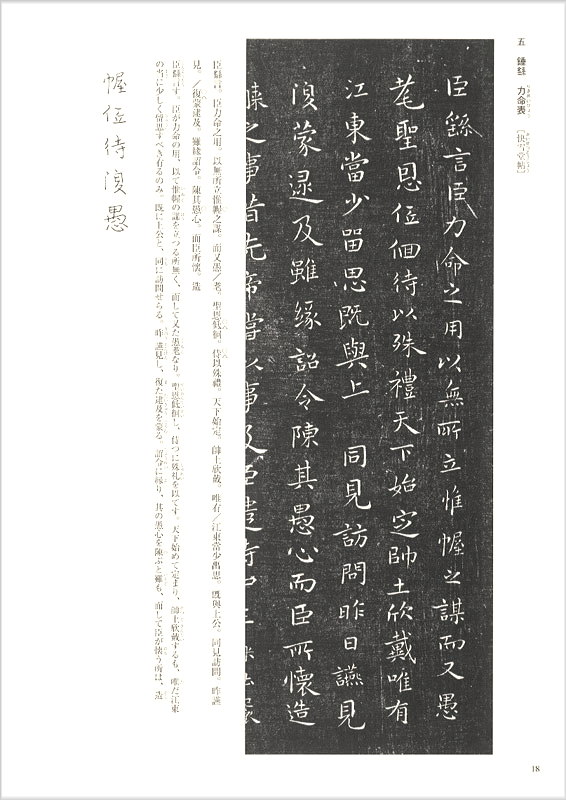 五 鍾繇 力命表 〔快雪堂帖〕
臣繇言臣力命之用以無所立惟幄之謀而又愚
耄聖恩低佪待以殊禮天下始定帥土欣戴唯有
江東當少留思既與上 同見訪問昨日讌見
復蒙逮及雖緣詔令陳其愚心而臣所懷造
膝之事昔先帝嘗以事及臣遣侍中王
臣繇言。臣力命之用。以無所立惟幄之謀。而又愚/耄。聖恩低徊。待以殊禮。天下始定。帥土欣戴。唯有/江東當少留思。既與上公。同見訪問。昨讌
見。/復蒙逮及。雖緣詔令。陳其愚心。而臣所懷。造
臣繇言す。臣が力命の用、以て惟幄の謀を立つる所無く、而して又た愚耄なり。聖恩低徊し、待つに殊礼を以てす。天下始めて定まり、帥土欣戴するも、唯だ江東
の当に少しく留思すべき有るのみ。既に上公と、同に訪問せらる。昨讌見し、復た逮及を蒙る。詔令に縁り、其の愚心を陳ぶと雖も、而して臣が懐う所は、造
幄低待復愚
18